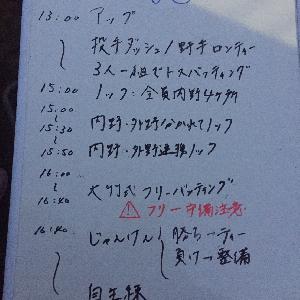 13:00 アップ
投手ダッシュ/野手ロンティー
3人一組でトスバッティング
15:00 ノック:全員内野4ヶ所
15:00
〜
15:30 内野・外野分かれてノック
15:50 内野・外野連携ノック
16:00
〜
16:40 大竹式フリーバッティング
⚠ フリー守備注意
16:40 じゃんけん 勝ち→ティー
負け→整備
自主練